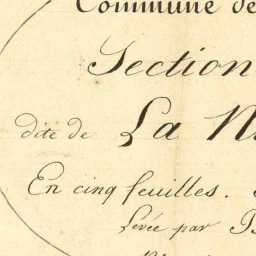 Commune de
Section
dite de La
En cinq feuilles.
Levée par